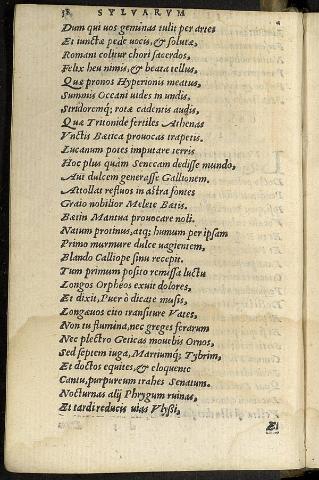 58 SYLVARVM
Dum qui uos geminas tulit per artes
Et iunctæ pede uocis, & solutæ,
Romani colitur chori sacerdos,
Felix heu nimis, & beata tellus,
Quæ pronos Hyperionis meatus,
Summis Oceani uides in undis,
Stridoremq; rotæ cadentis audis,
Quæ Tritonide fertiles Athenas
Vnctis Bætica prouocas trapetis.
Lucanum potes imputare terris
Hoc plus quàm Senecam dedisse mundo,
Aut dulcem generasse Gallionem.
Attollat refluos in astra fontes
Graio nobilior Melete Bætis.
Bætin Mantua prouocare noli.
Natum protinus, atq; humum per ipsam
Primo murmure dulce uagientem,
Blando Calliope sinu recepit.
Tum primum posito remissa luctu
Longos Orpheos exuit dolores,
Et dixit, Puer ô dicate musis,
Longæuos cito transiture Vates,
Non tu flumina, nec greges ferarum
Nec plectro Geticas mouebis Ornos,
Sed septem iuga, Martiumq; Tybrim,
Et doctos equites, & eloquente
Cantu, purpureum trahes Senatum.
Nocturnas alij Phrygum ruinas,
Et tardi reducis uias Vlyssi,
Et